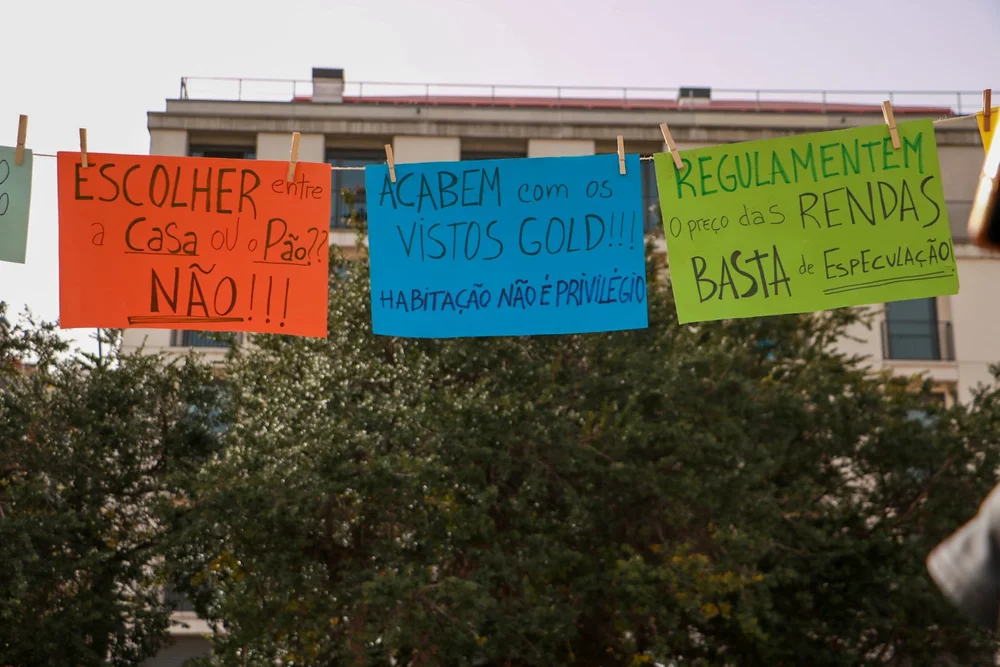 ESCOLHER entre
a Casa ou o Pão??
NÃO!!!
ACABEM com os
VISTOS GOLD!!!
HABITAÇÃO NÃO É PRIVILÉGIO
REGULAMENTEM
O PREÇO das RENDAS
BASTA de ESPECULAÇÃO